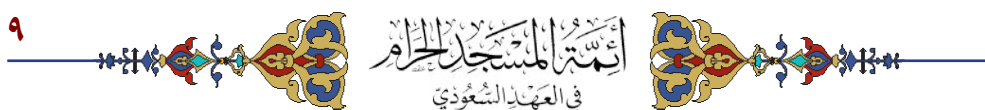 ٩
أئمة المسجد الحرام
في العهد السعودي